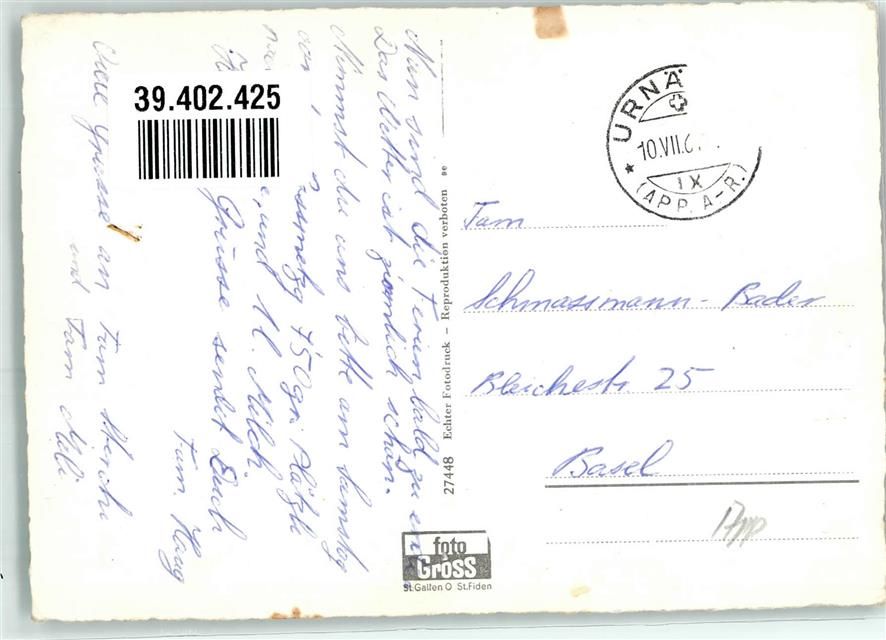 Nun sind die Ferien bald zu en
Das Wetter ist ziemlich schön.
Nimmst du uns bitte am Samstag
von
ssmetzg 750gr. Plätzli
e, und 1l. Milch.
Grüsse sendet Euch
Fam. Haag
Viele Grüsse an Fam
und Fam
39.402.425
27448 Echter Fotodruck – Reproduktion verboten
foto
Gross
St.Gallen O St.Fiden
URNÄ
10.VII.6
IX
(APP. A-R.)
Fam
Schmassmann - Bader
Bleichestr 25
Basel
App